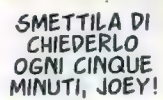 SMETTILA DI
CHIEDERLO
OGNI CINQUE
MINUTI, JOEY!